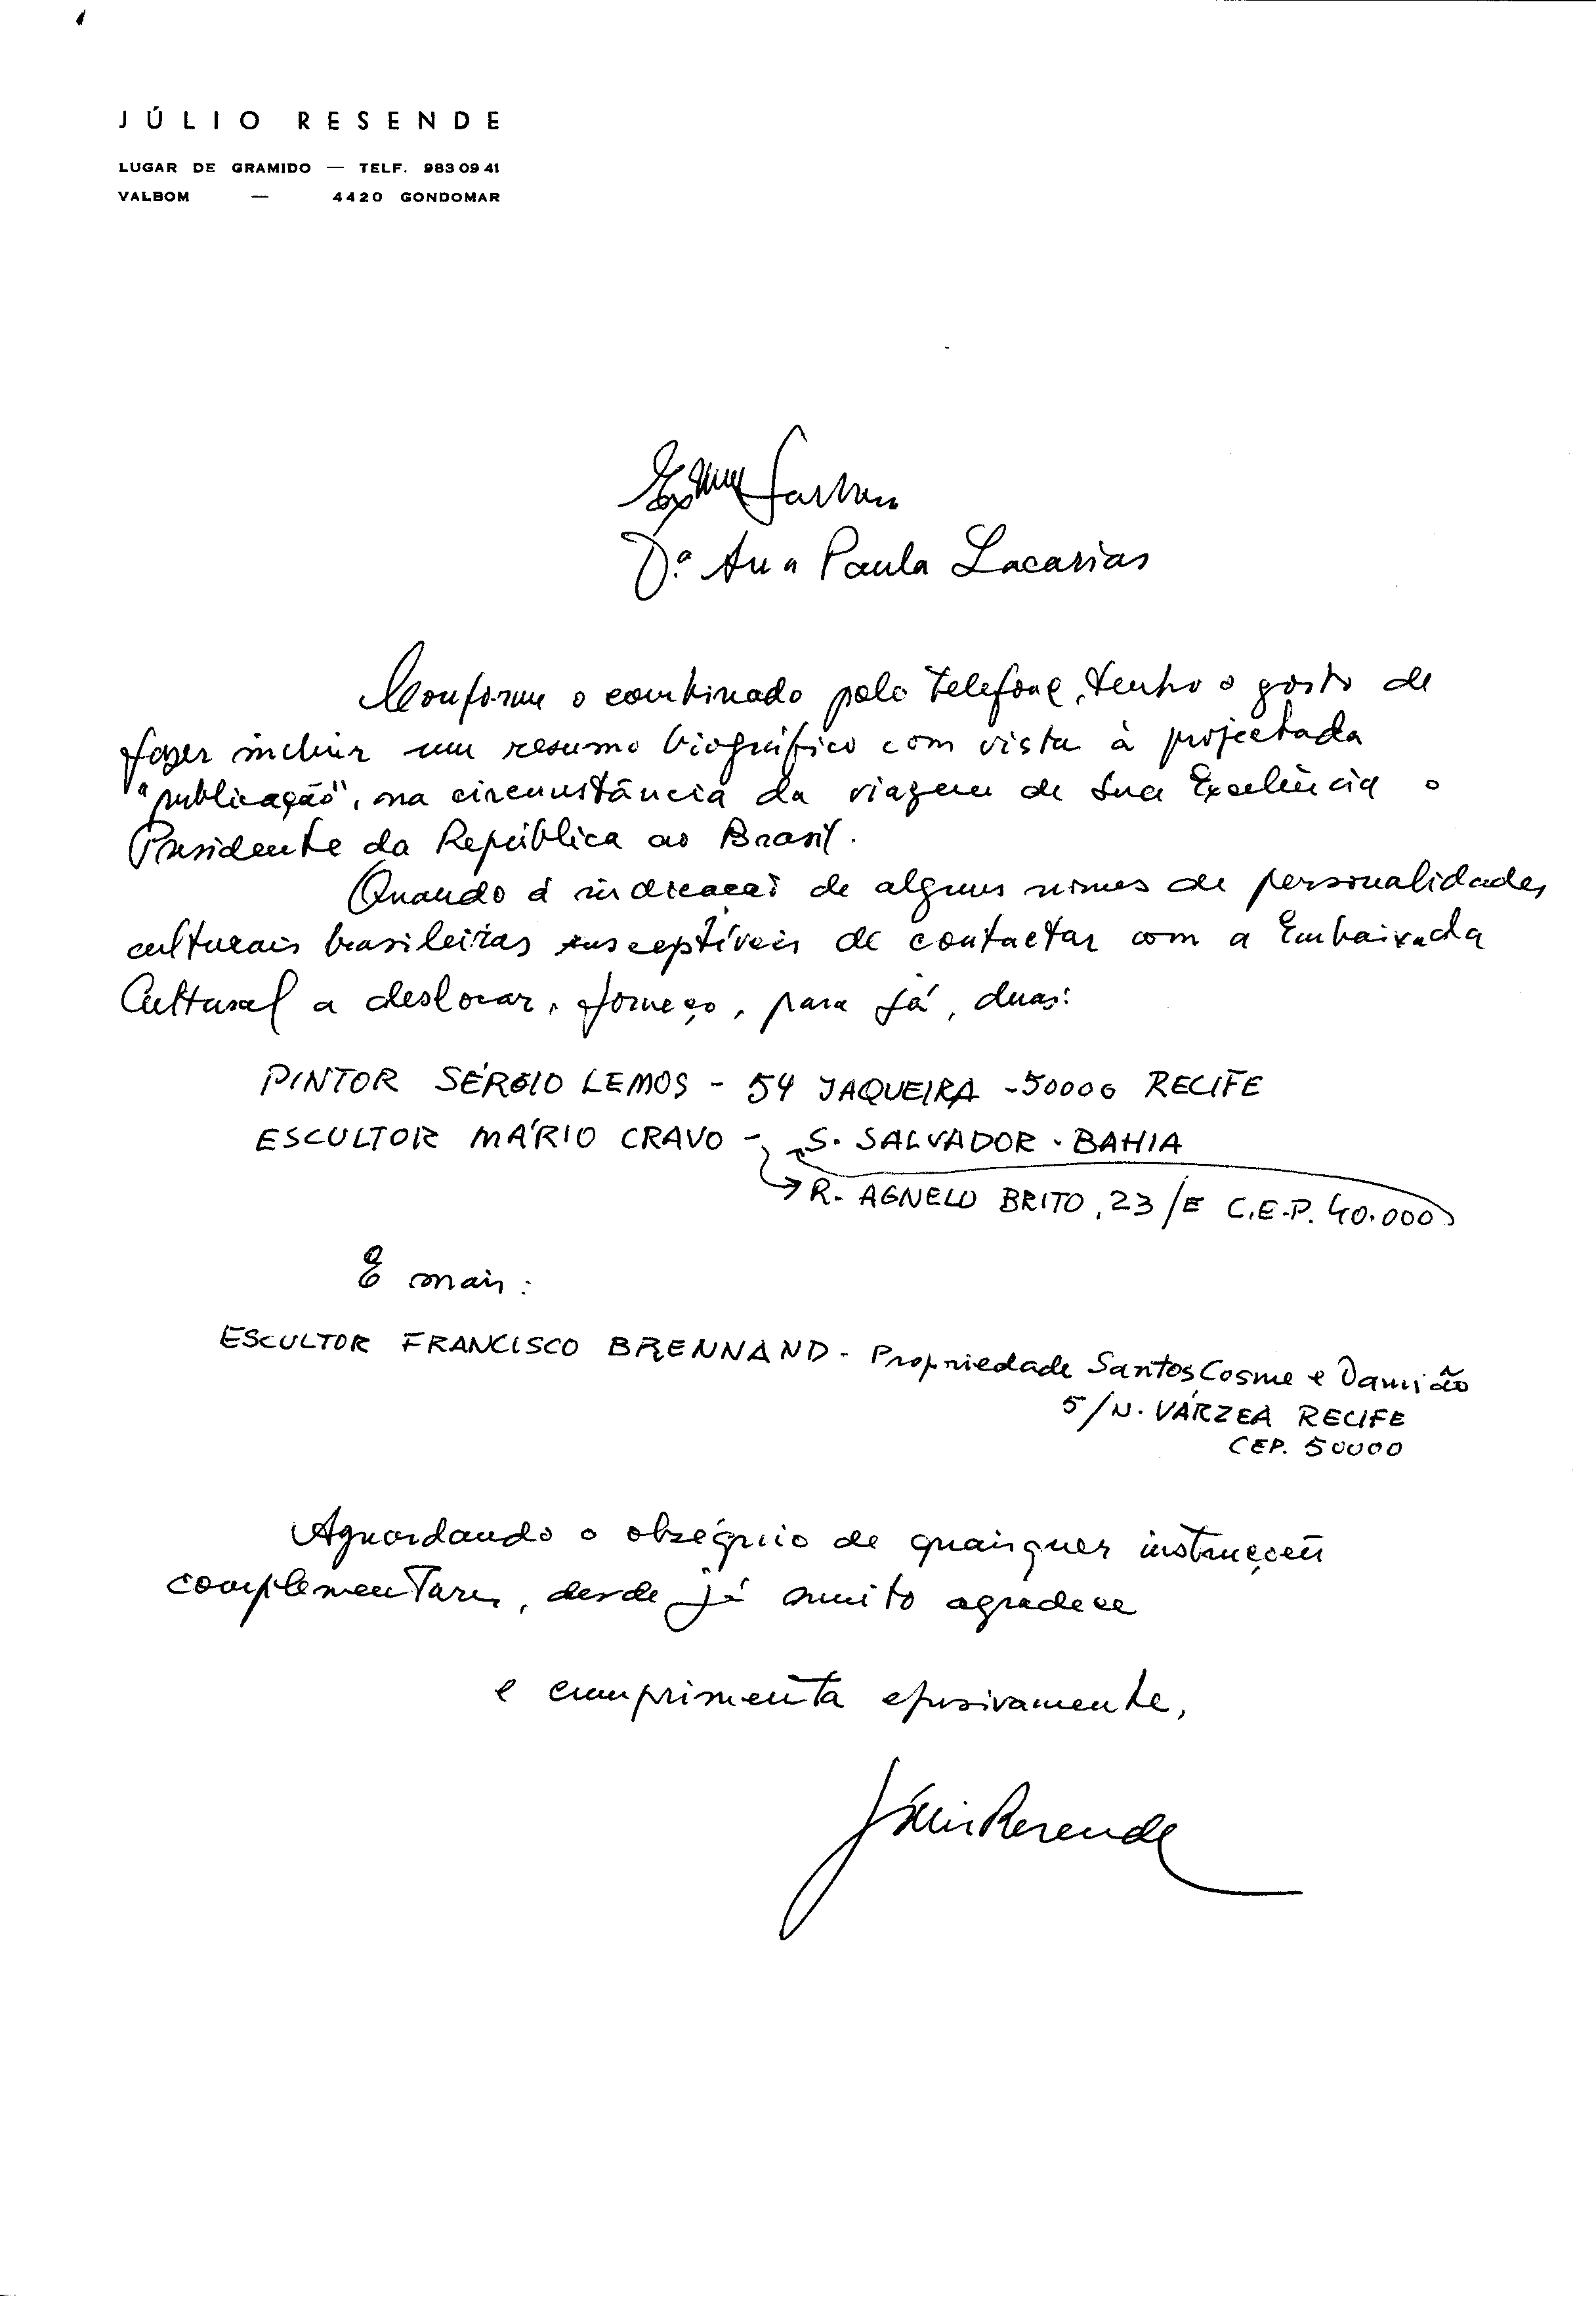 JÚLIO RESENDE
LUGAR DE GRAMIDO — TELF. 983 09 41
VALBOM — 4420 GONDOMAR
Exma Senhora
D.ª Ana Paula Zacarias
Conforme o combinado pelo telefone, tenho o gosto de
fazer incluir um resumo biográfico com vista à projectada
"publicação", na circunstância da viagem de Sua Excelência o
Presidente da República ao Brasil.
Quando à indicação de alguns nomes de personalidades
culturais brasileiras susceptíveis de contactar com a Embaixada
Cultural a deslocar, forneço, para já, duas:
PINTOR SÉRGIO LEMOS - 54 JAQUEIRA - 50000 RECIFE
ESCULTOR MÁRIO CRAVO - S. SALVADOR - BAHIA
R. AGNELO BRITO, 23/E C.E.P. 40.000
E mais:
ESCULTOR FRANCISCO BRENNAND - Propriedade Santos Cosme e Damião
S/N. VÁRZEA RECIFE
CEP. 50000
Aguardando o obséquio de quaisquer instruções
complementares, desde já muito agradece
e cumprimenta efusivamente,
Júlio Resende